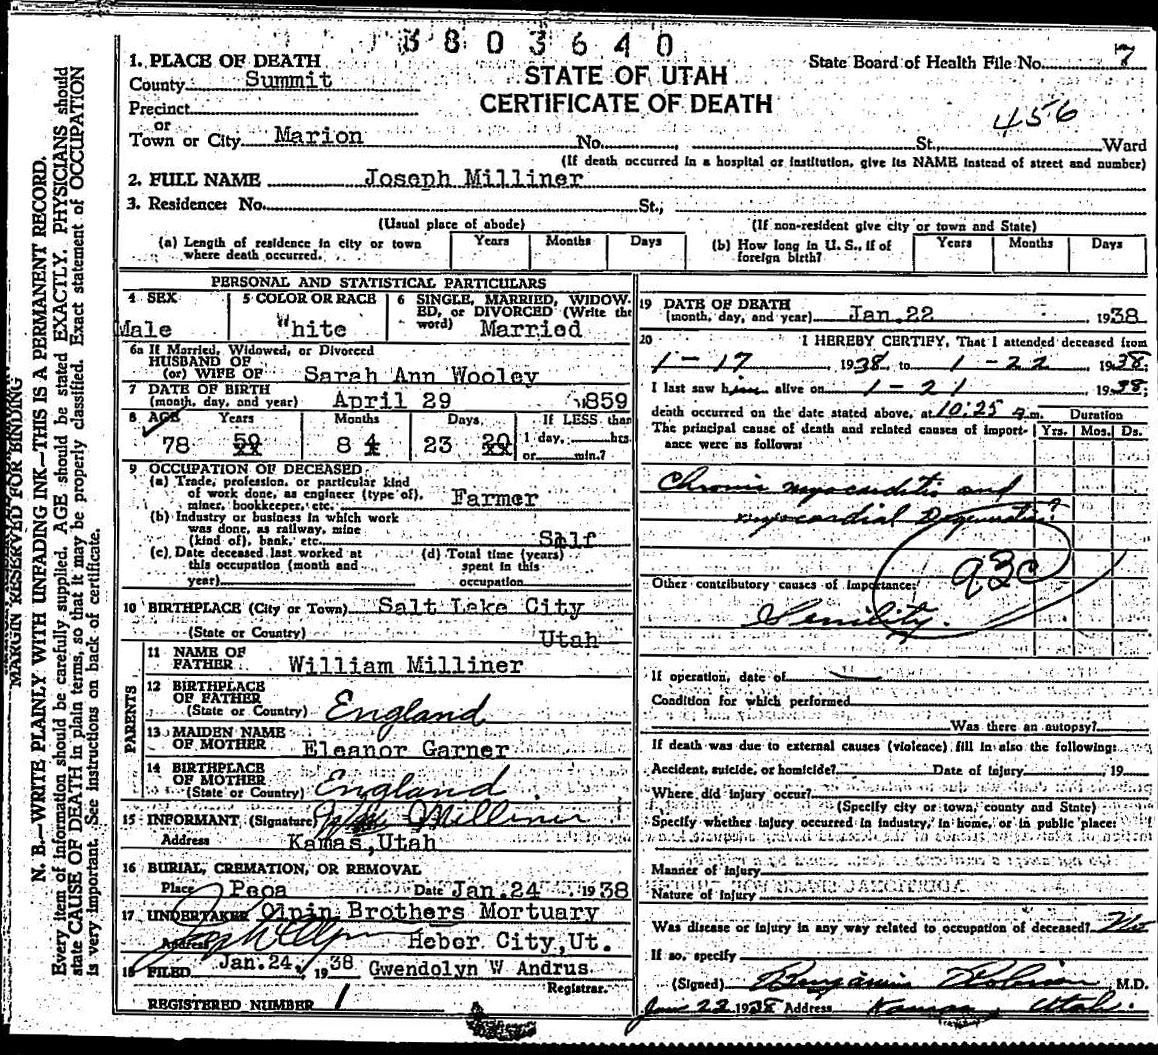 3803640
1. PLACE OF DEATH
County Summit
STATE OF UTAH
State Board of Health File No. 7
Precinct
CERTIFICATE OF DEATH
or
456
Town or City Marion No. St., Ward
(If death occurred in a hospital or institution, give its NAME instead of street and number)
2. FULL NAME Joseph Milliner
3. Residence: No. St.,
(Usual place of abode) (If non-resident give city or town and State)
(a) Length of residence in city or town where death occurred. Years Months Days
(b) How long in U. S., if of foreign birth? Years Months Days
PERSONAL AND STATISTICAL PARTICULARS
4 SEX
Male
5 COLOR OR RACE
White
6 SINGLE, MARRIED, WIDOW-
ED, or DIVORCED (Write the
word) Married
6a If Married, Widowed, or Divorced
HUSBAND OF
(or) WIFE OF Sarah Ann Wooley
7 DATE OF BIRTH
(month, day, and year) April 29 1859
8 AGE Years Months Days If LESS than
78 59 8 4 23 20 1 day, hrs.
or min.?
9 OCCUPATION OF DECEASED
(a) Trade, profession, or particular kind
of work done, as engineer (type of),
miner, bookkeeper, etc. Farmer
(b) Industry or business in which work
was done, as railway, mine
(kind of), bank, etc. Self
(c) Date deceased last worked at
this occupation (month and
year)
(d) Total time (years)
spent in this
occupation
10 BIRTHPLACE (City or Town) Salt Lake City
(State or Country) Utah
PARENTS
11 NAME OF
FATHER William Milliner
12 BIRTHPLACE
OF FATHER
(State or Country) England
13 MAIDEN NAME
OF MOTHER Eleanor Garner
14 BIRTHPLACE
OF MOTHER
(State or Country) England.
15 INFORMANT (Signature) Milliner
Address Kamas, Utah
16 BURIAL, CREMATION, OR REMOVAL
Place Peoa Date Jan. 24 1938
17 UNDERTAKER Olpin Brothers Mortuary
Address Heber City, Ut.
18 FILED Jan. 24, 1938 Gwendolyn W Andrus
Registrar.
REGISTERED NUMBER 1
19 DATE OF DEATH
(month, day, and year) Jan. 22, 1938
20 I HEREBY CERTIFY, That I attended deceased from
1-17 1938, to 1-22 1938;
I last saw him alive on 1-21 1938;
death occurred on the date stated above, at 10:25 a.m. Duration
The principal cause of death and related causes of import-
ance were as follows: Yrs. Mos. Ds.
Chronic myocarditis and
myocardial Degeneration
93c
Other contributory causes of importance:
Senility.
If operation, date of
Condition for which performed
Was there an autopsy?
If death was due to external causes (violence) fill in also the following:
Accident, suicide, or homicide? Date of injury, 19
Where did injury occur?
(Specify city or town, county and State)
Specify whether injury occurred in industry, in home, or in public place:
Manner of injury
Nature of injury
Was disease or injury in any way related to occupation of deceased? No
If so, specify
(Signed) Benjamin Robison, M.D.
Jan 22 1938 Address Kamas, Utah.
MARGIN RESERVED FOR BINDING
N. B.—WRITE PLAINLY WITH UNFADING INK—THIS IS A PERMANENT RECORD.
Every item of information should be carefully supplied. AGE should be stated EXACTLY. PHYSICIANS should
state CAUSE OF DEATH in plain terms, so that it may be properly classified. Exact statement of OCCUPATION
is very important. See instructions on back of certificate.